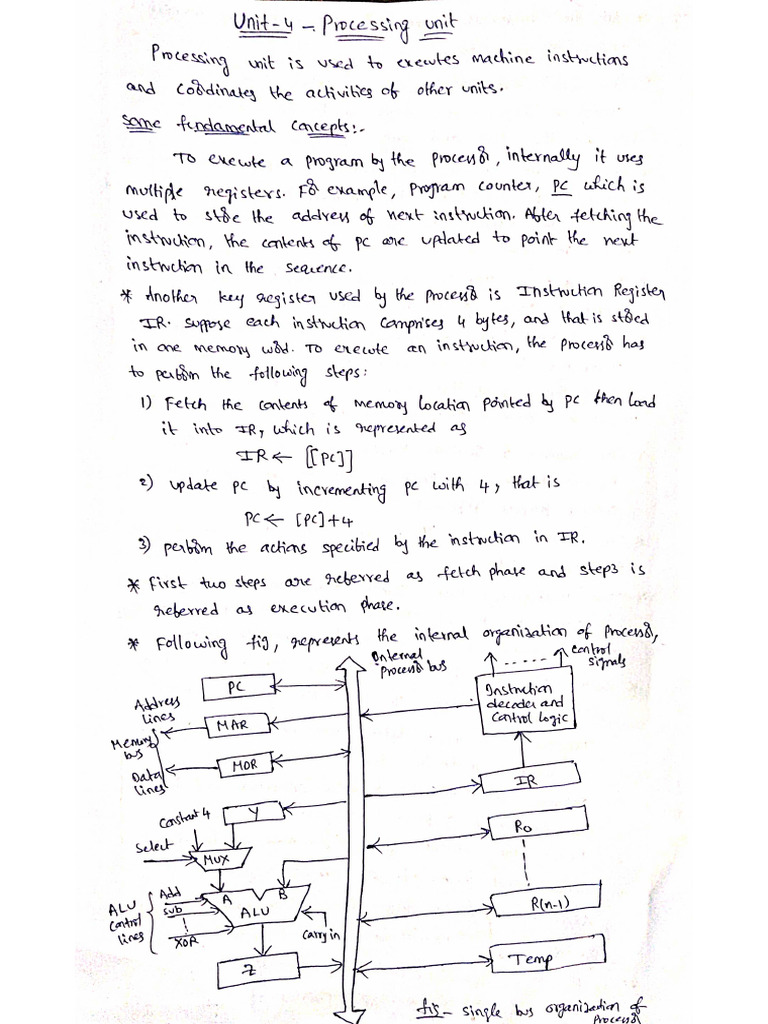 Unit-4 - Processing unit
Processing unit is used to executes machine instructions
and coordinates the activities of other units.
Some fundamental concepts:-
To execute a program by the processor, internally it uses
multiple registers. For example, program counter, PC which is
used to store the address of next instruction. After fetching the
instruction, the contents of PC are updated to point the next
instruction in the sequence.
* Another key register used by the processor is Instruction Register
IR. suppose each instruction comprises 4 bytes, and that is stored
in one memory word. To execute an instruction, the processor has
to perform the following steps:
1) Fetch the contents of memory location pointed by PC then load
it into IR, which is represented as
IR ← [[PC]]
2) update PC by incrementing PC with 4, that is
PC ← [PC]+4
3) perform the actions specified by the instruction in IR.
* First two steps are referred as fetch phase and step3 is
referred as execution phase.
* Following fig, represents the internal organization of processor,
Internal
processor bus
control
signals
PC
Instruction
decoder and
control Logic
Address
lines
MAR
Memory
bus
MDR
Data
lines
IR
Constant 4
Y
R0
Select
MUX
ALU
control
lines
Add
sub
XOR
A
B
ALU
Carry in
R(n-1)
Z
Temp
fig - single bus organization of
processor